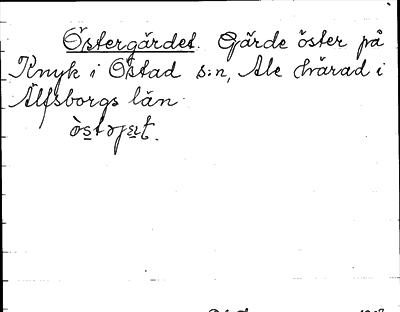 Östergärdet. Gärde öster på
Knyk i Östad s:n, Ale härad i
Älfsborgs län.